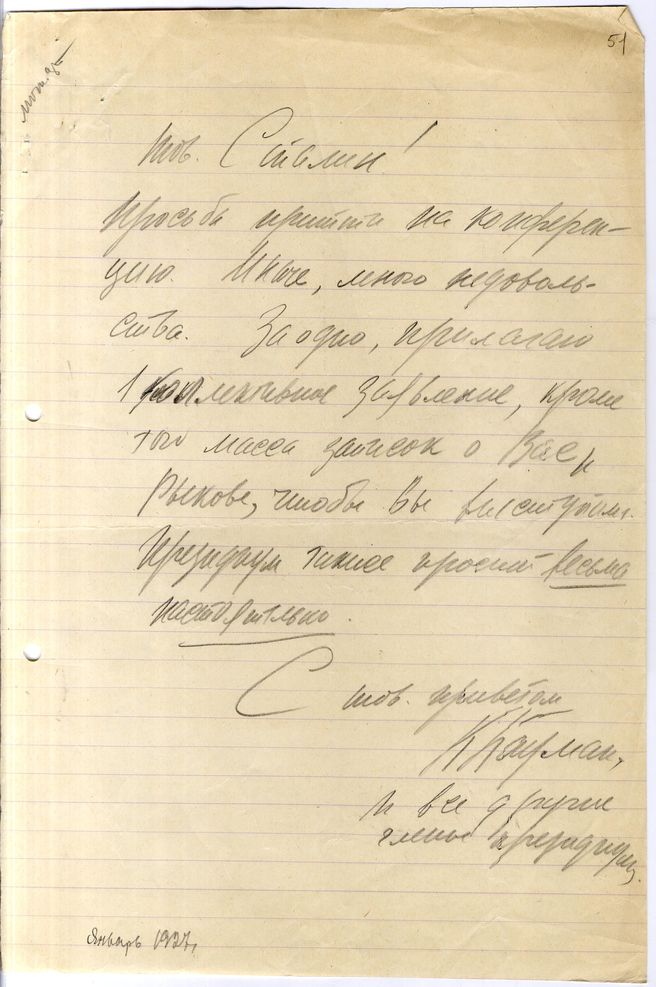 51
тов. Сталин!
Просьба притти на конферен-
цию. Иначе, много недоволь-
ства. Заодно, прилагаю
1 коллективное заявление, кроме
того масса записок о Вас и
Рыкове, чтобы Вы выступали.
Президиум также просит весьма
настоятельно.
С тов. приветом
и все другие
члены президиума.
Январь 1927 г.